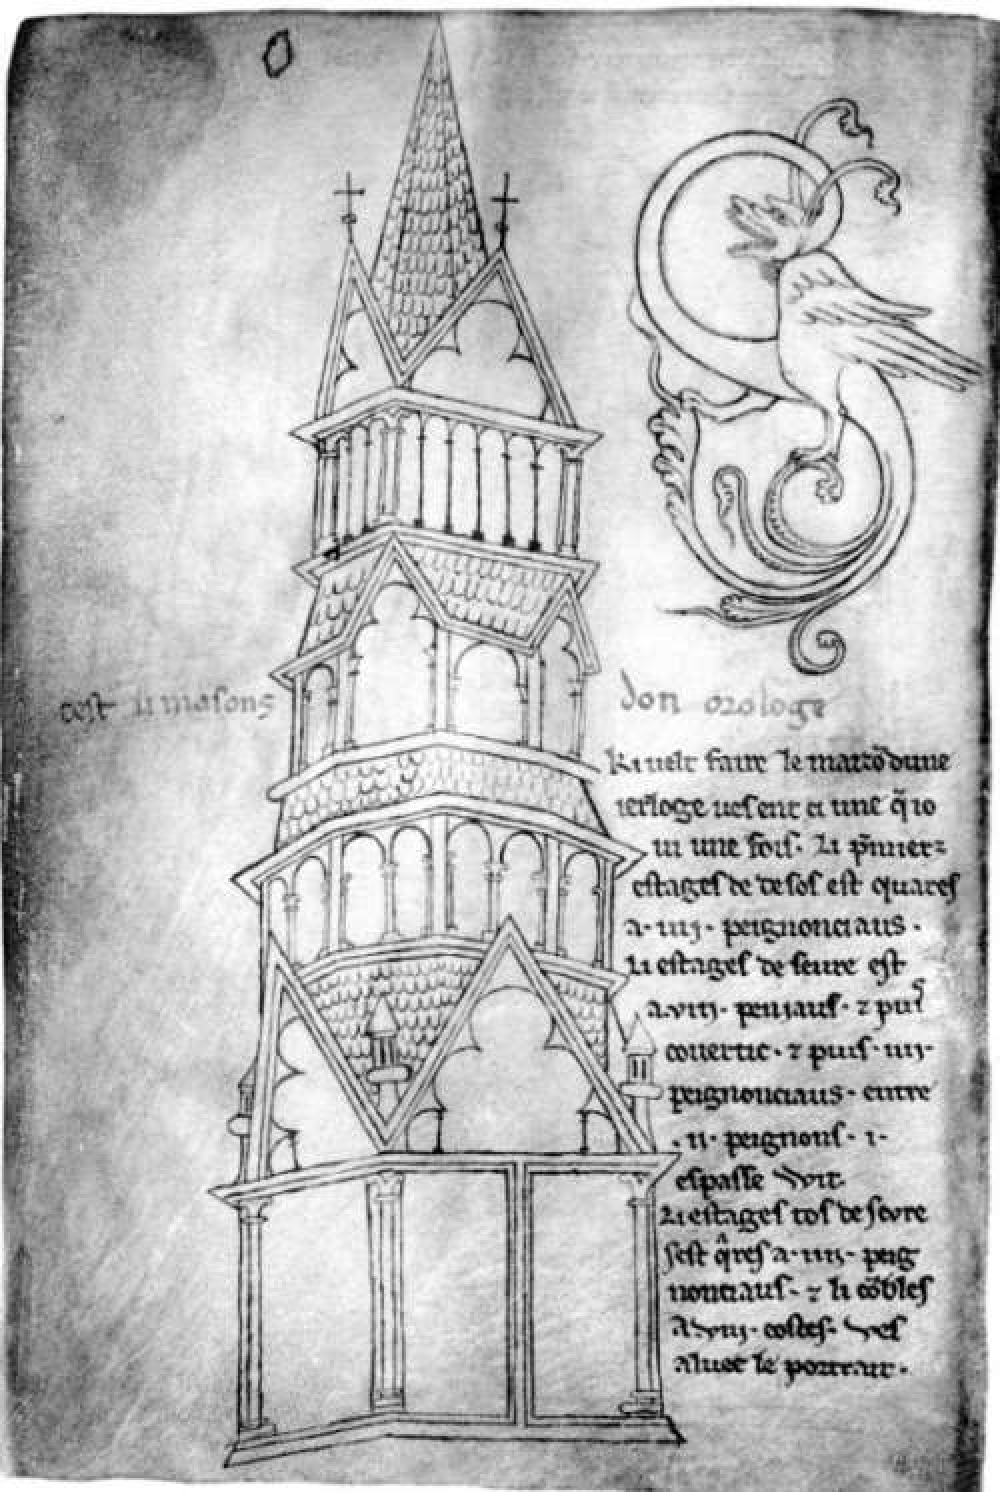 cest li masons don orologe
Ki velt faire le maizō dune
ierloge ves ent ci une q̄ io
vi une fois. Li p̄miers
estages de desos est quarés
a .iiij. peignonciaus.
Li estages de seure est
a .viij. peniaus. ⁊ puis
covertic. ⁊ puis .iiij.
peignonciaus. entre
.ij. peignons. i.
espasse wit.
Li estages tos de sovre
sest q̄res a .iiij. peig
nonciaus. ⁊ li cōbles
a viij. costes. ves
aluec le portrait.